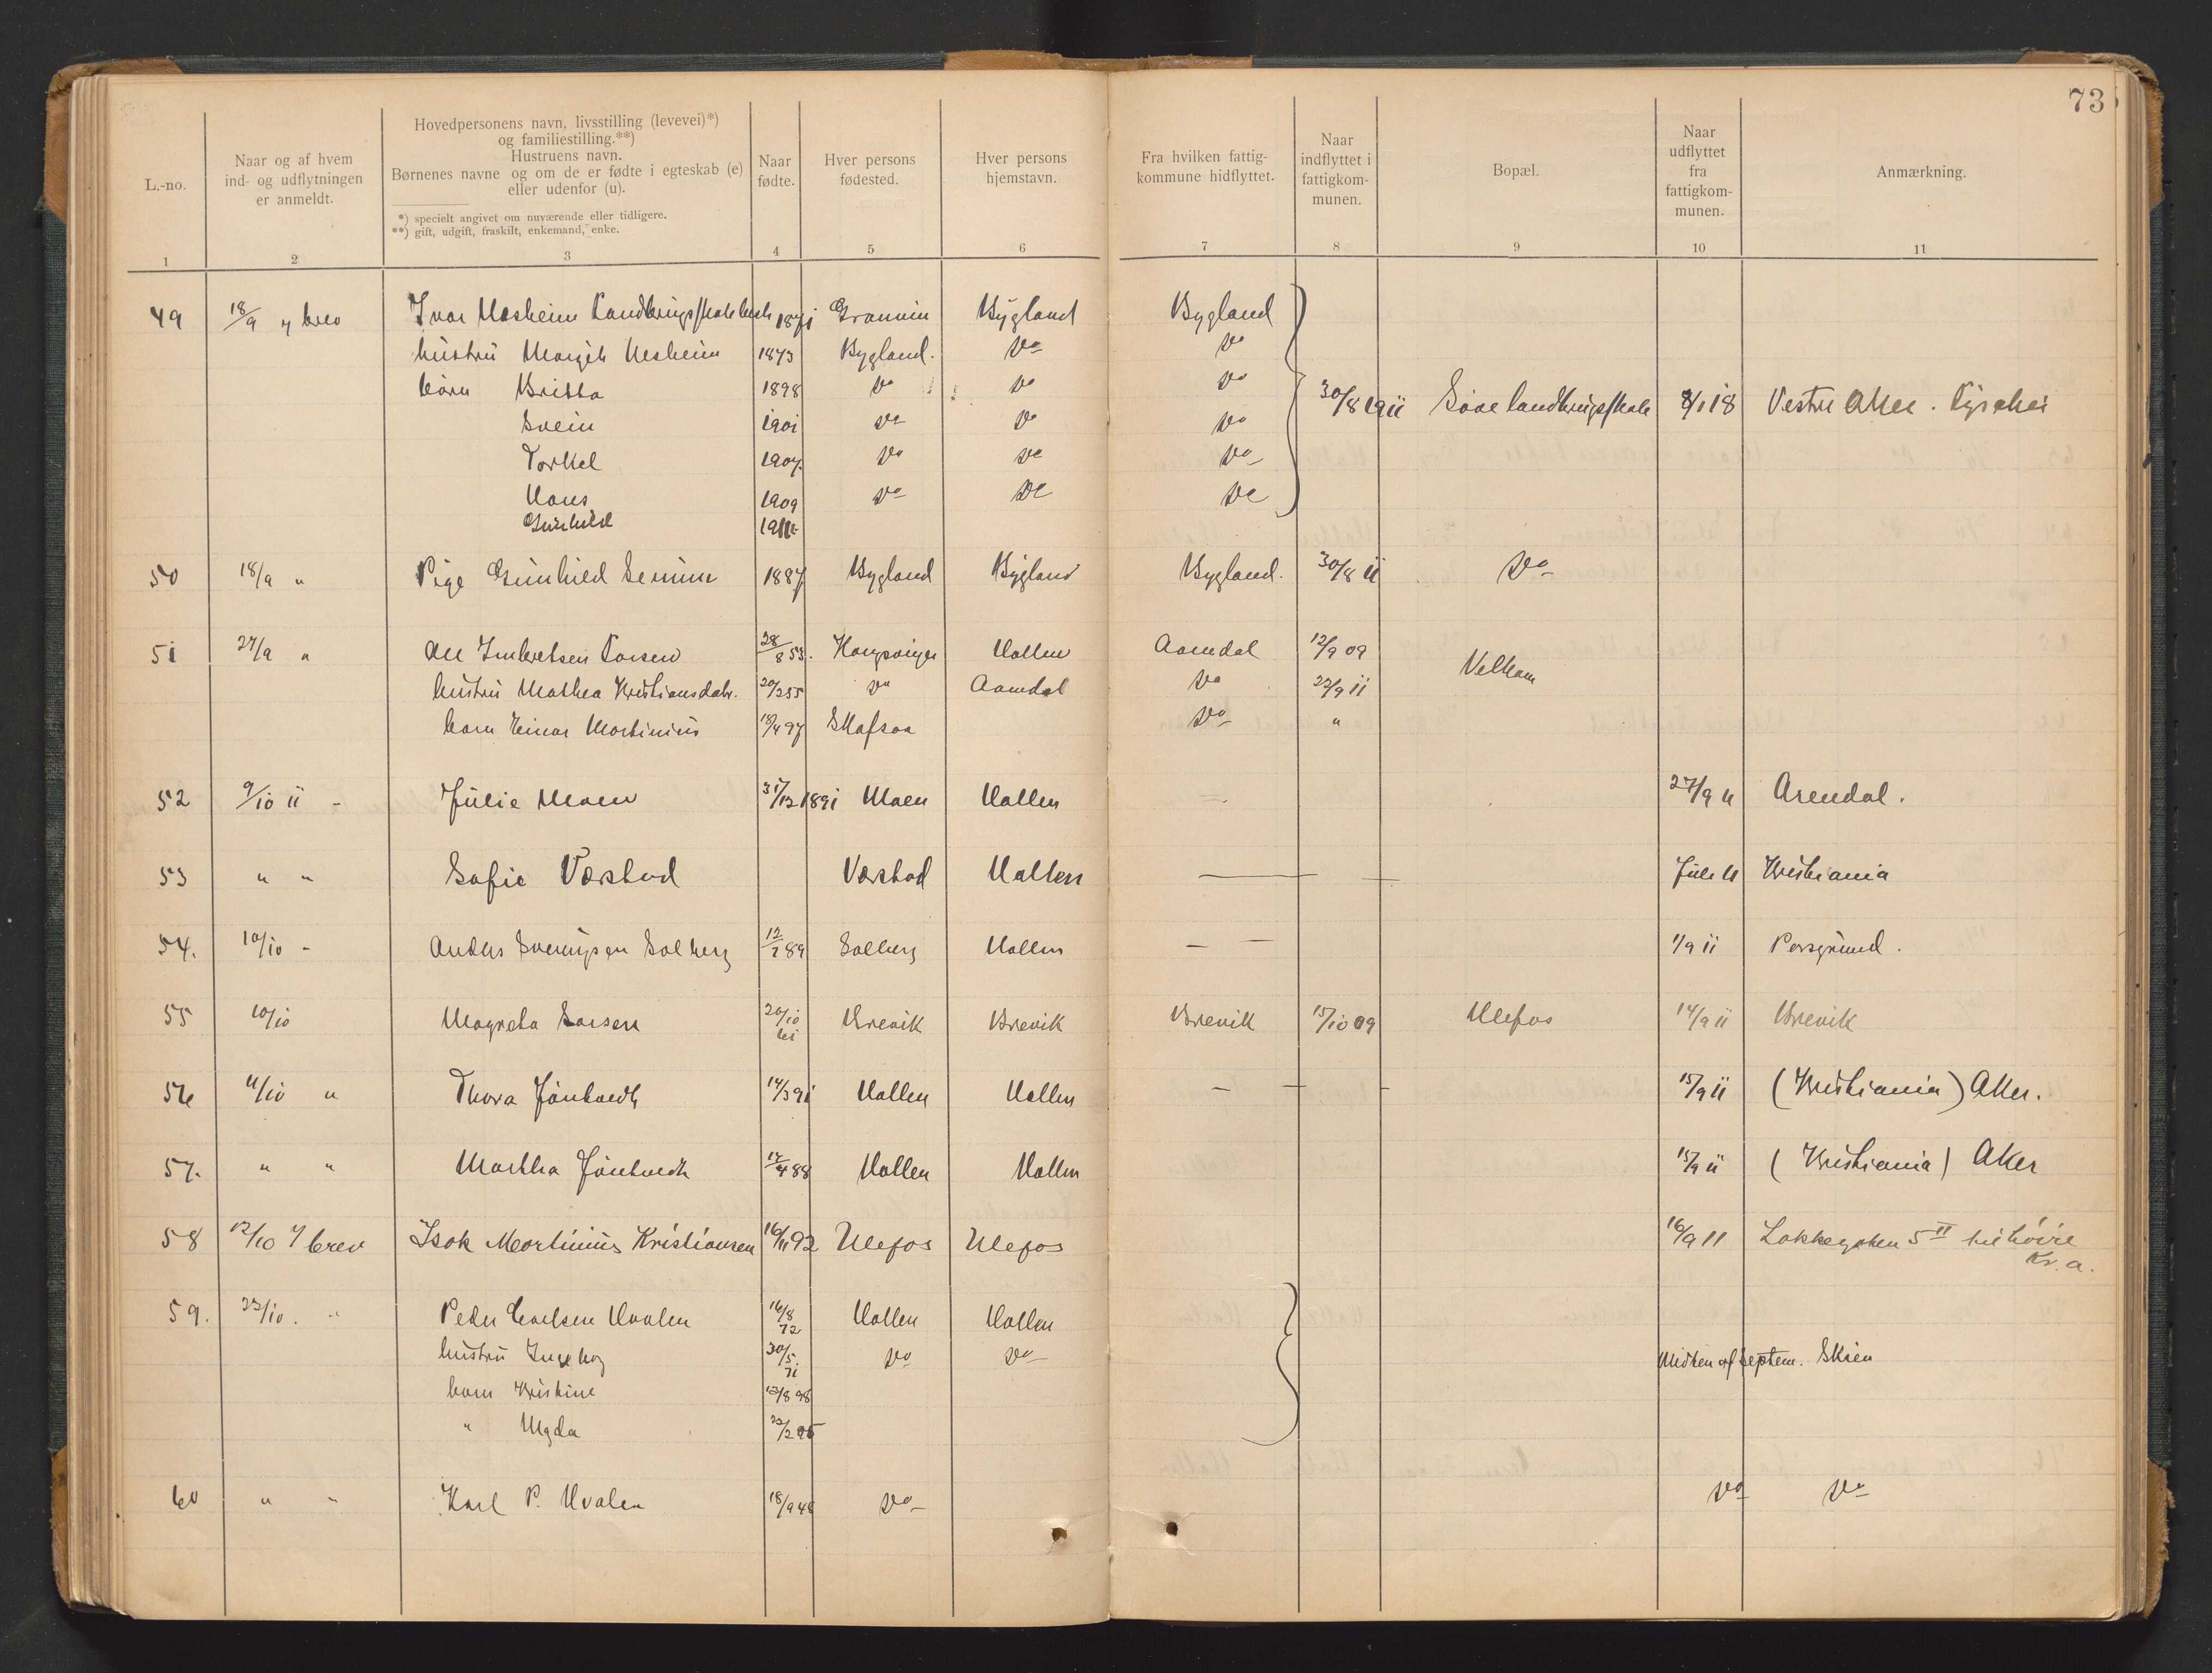 73
L.-no.
Naar og af hvem
ind- og udflytningen
er anmeldt.
Hovedpersonens navn, livsstilling (levevei)*)
og familiestilling.**)
Hustruens navn.
Børnenes navne og om de er fødte i egteskab (e)
eller udenfor (u).
*) specielt angivet om nuværende eller tidligere.
**) gift, udgift, fraskilt, enkemand, enke.
Naar
fødte.
Hver persons
fødested.
Hver persons
hjemstavn.
Fra hvilken fattig-
kommune hidflyttet.
Naar
indflyttet i
fattigkom-
munen.
Bopæl.
Naar
udflyttet
fra
fattigkom-
munen.
Anmærkning.
1 2 3 4 5 6 7 8 9 10 11
49 18/9 brev Ivar 1871 Granvin Bygland Bygland
hustru Margit Nesheim 1873 Bygland. Do Do
børn Britta 1898 Do Do Do 30/8 1911 Søve landbrugsskole 8/1 18 Vestre Aker.
Svein 1901 Do Do Do
Torkel 1907 Do Do Do
Hans 1909 Do Do Do
Gunhild 1911
50 18/9 " Pige Gunhild 1887 Bygland Bygland Bygland. 30/8 11 Do
51 27/9 " Larsen 28/8 53. Kongsvinger Hollen Aamdal 12/9 09 Velkam
hustru Mathea Kristiansdatr. 20/2 55 Do Aamdal Do 22/9 11
barn Einar Martinius 18/4 97 Skafsaa Do "
52 9/10 11 - Julie Moen 31/12 1891 Moen Hollen 27/9 11 Arendal.
53 " " Sofie Værstad Værstad Hollen Juli 11 Kristiania
54. 10/10 - Anders Solberg 12/7 89 Solberg Hollen 1/9 11 Porsgrund.
55 10/10 Magreta Larsen 20/10 61 Brevik Brevik Brevik 15/10 09 Ulefos 14/9 11 Brevik
56 11/10 " Thora Jønholdt 14/3 91 Hollen Hollen 15/9 11 (Kristiania) Aker.
57. " " Martha Jønholdt 14/4 88 Hollen Hollen 15/9 11 (Kristiania) Aker
58 12/10 brev Isak Martinius Kristiansen 16/11 92 Ulefos Ulefos 16/9 11 Lakkegaten 5 II til høire
Kr. a.
59. 23/10. " Peder Carlsen Hvalen 16/8 72 Hollen Hollen
hustru Ingeborg 30/5. 71 Do Do Midten af Septem. Skien
barn Kristine 12/8 98
" Magda 22/2 05
60 " " Karl P. Hvalen 18/9 48 Do Do Do